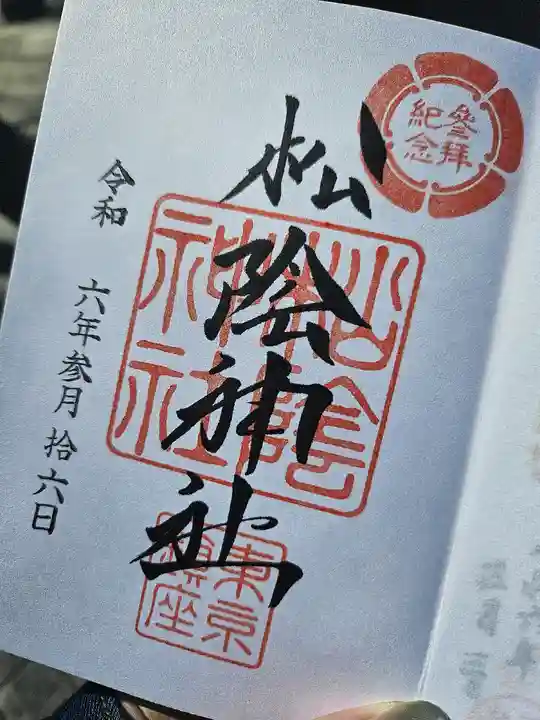 參拜
紀念
松陰神社
松陰
神社
東京
鎮座
令和 六年参月拾六日